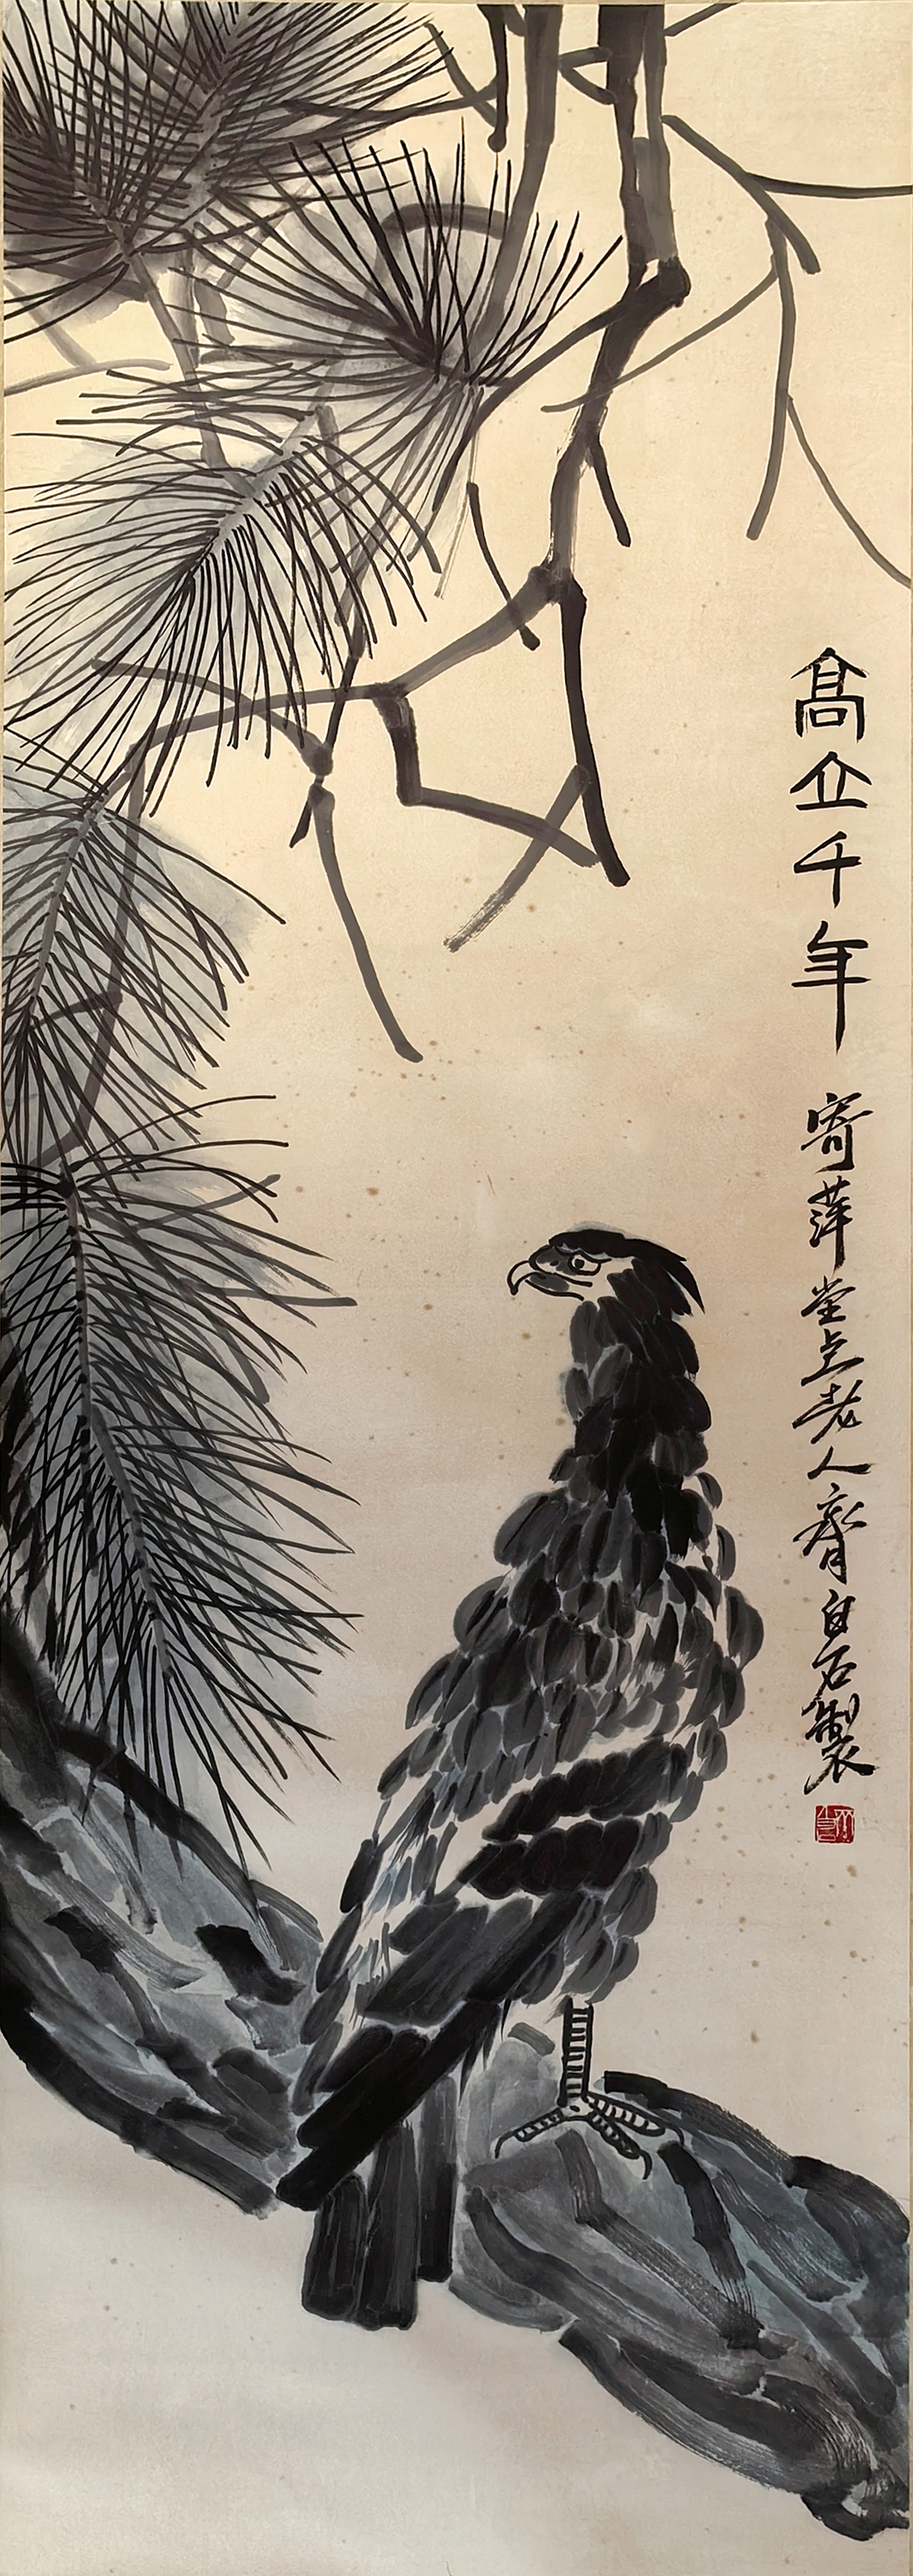 高立千年 寄萍堂上老人齊白石製